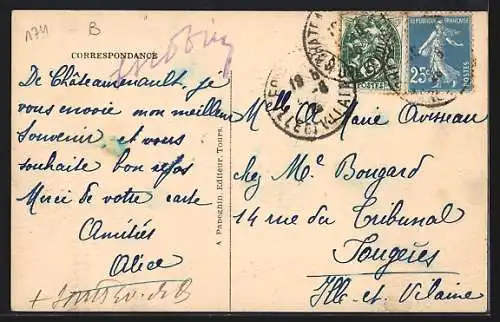 174
B
CORRESPONDANCE
De Châteaurenault je
vous envoie mon meilleur
Souvenir et vous
souhaite bon repos
Merci de votre carte
Amitiés
Alice
A Papeghin Editeur, Tours.
REPUBLIQUE FRANÇAISE
25
POSTES
POSTES
Melle A Marie Avisseau
chez Me Bougard
14 rue du Tribunal
Fougères
Ille-et-Vilaine